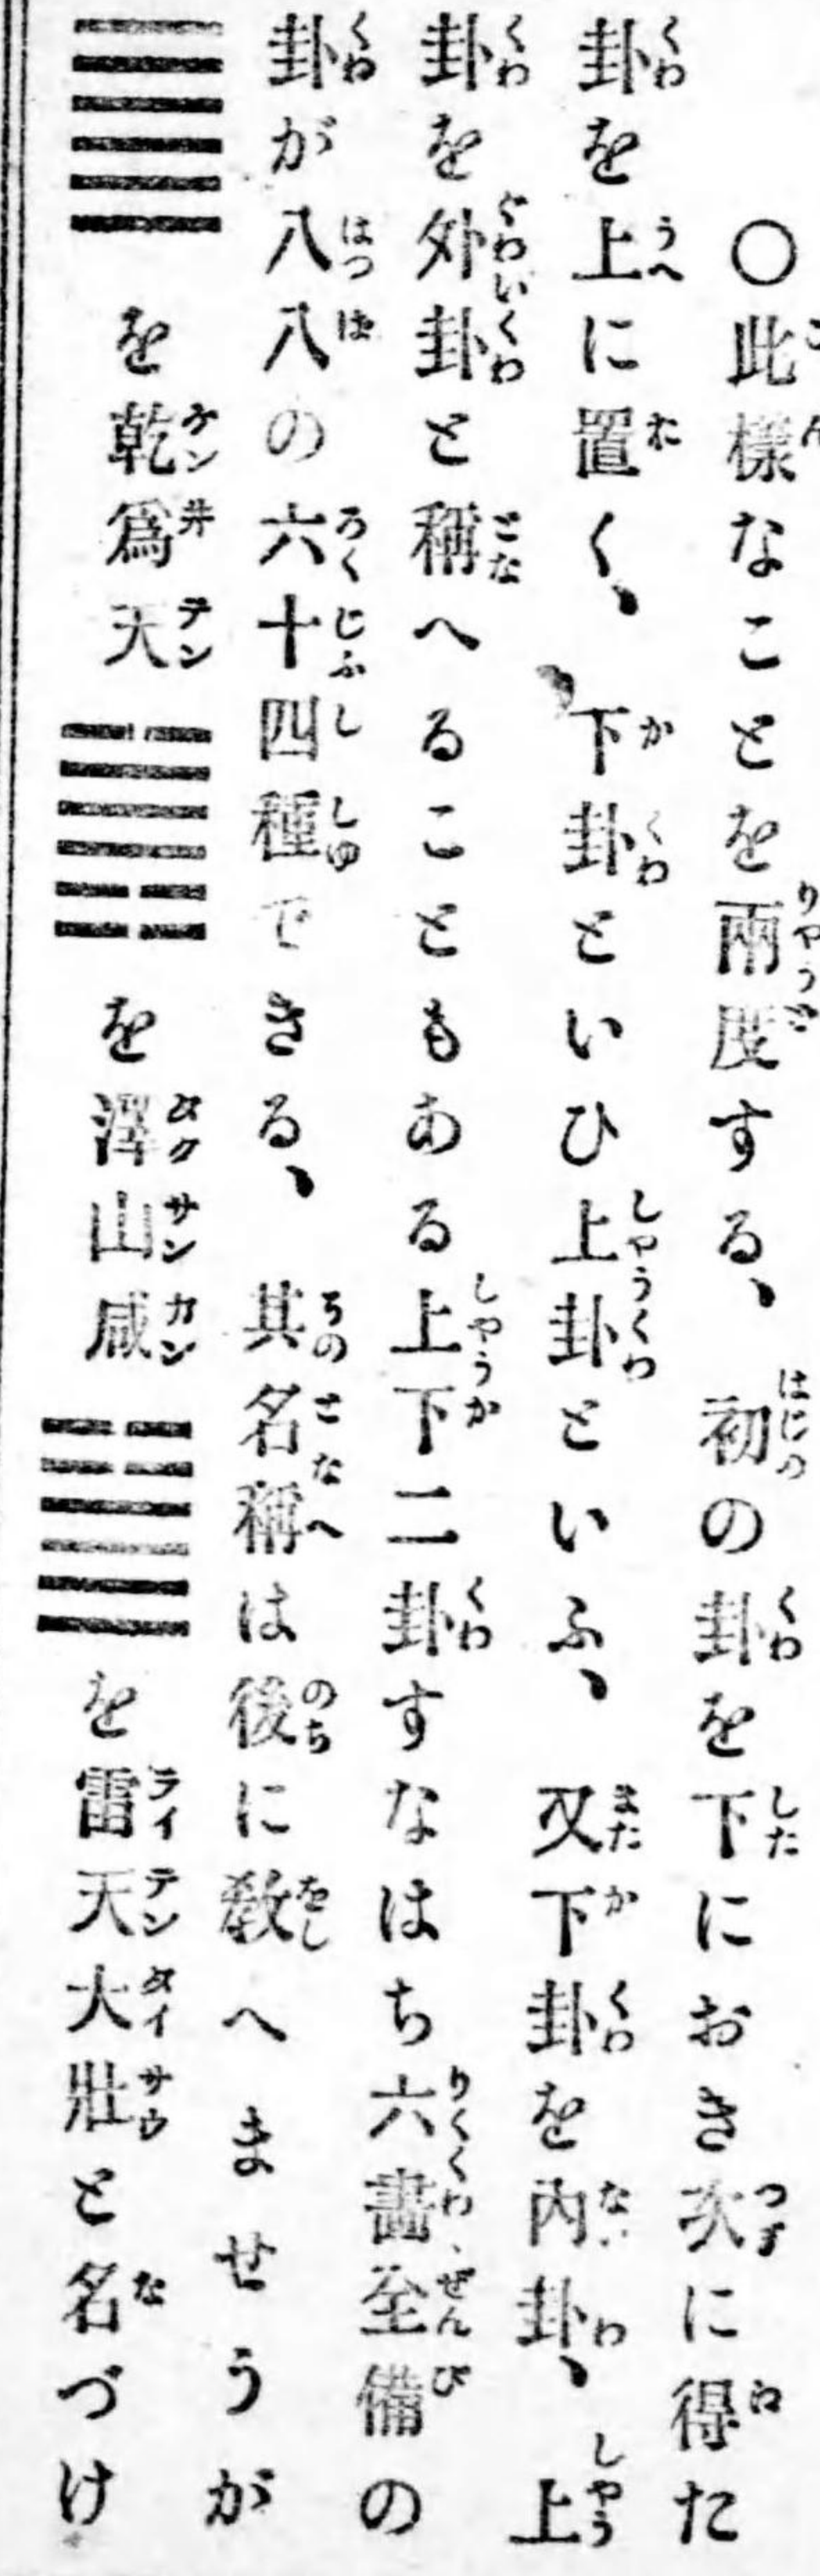 〇此樣なことを兩度する、初の卦を下におき次に得た
卦を上に置く、下卦といひ上卦といふ、又下卦を內卦、上
卦を外卦と稱へることもある上下二卦すなはち六畫全備の
卦が八八の六十四種できる、其名稱は後に敎へませうが
䷀を乾爲天䷞を澤山咸䷡を雷天大壯と名づけ